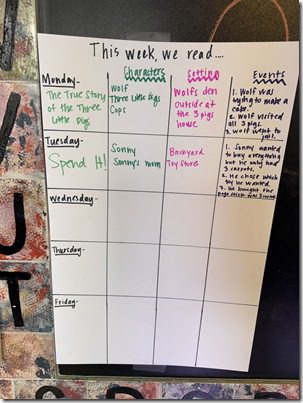 This week, we read....
Characters Setting Events
Monday-
The True Story
of the Three
Little Pigs
Wolf
Three Little Pigs
Cops
Wolfs den
outside at
the 3 pigs
house
1. Wolf was
trying to make a
cake.
2. Wolf visited
all 3 pigs.
3. Wolf went to
jail.
Tuesday-
Spend It!
Sonny
Sonny's mom
Backyard
Toy Store
1. Sonny wanted
to buy
but he only had
3 carrots.
2. He chose which
toy he wanted.
3. He bought the
Wednesday-
Thursday-
Friday-